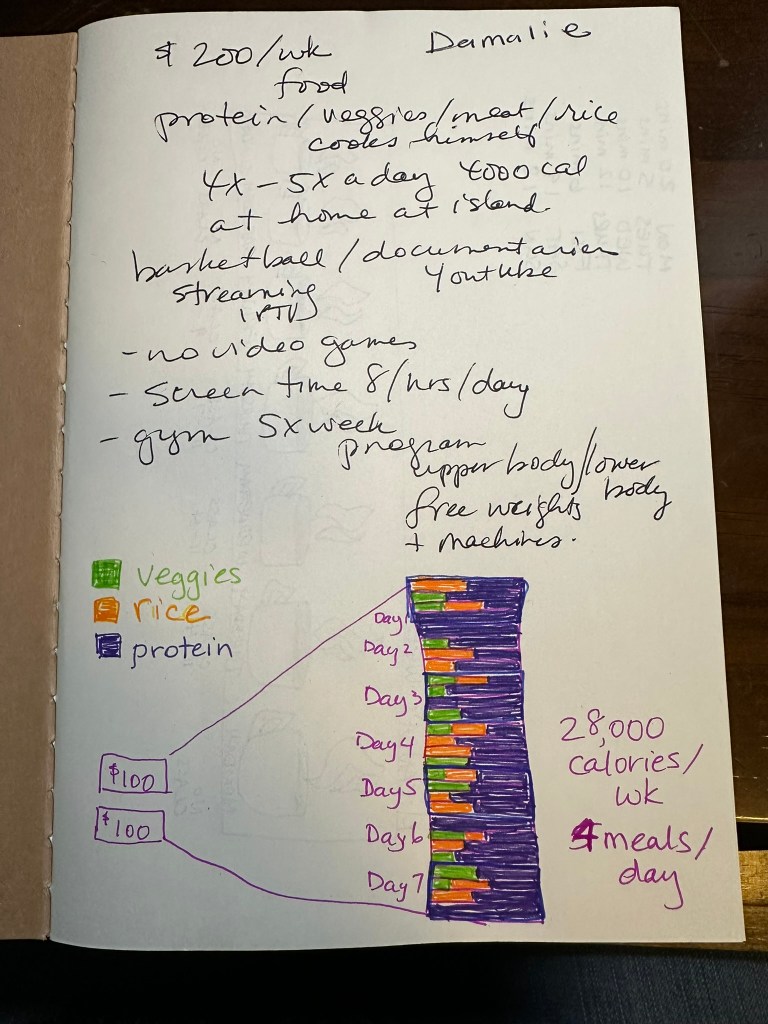 $200/wk
food
Damalie
protein/veggies/meat/rice
cooks himself
4x-5x a day 4000 cal
at home at island
basketball/documentaries
streaming
Youtube
IPTV
- no video games
- screen time 8/hrs/day
- gym 5x week
program
upper body/lower
body
free weights
+ machines.
veggies
rice
protein
Day 1
Day 2
Day 3
Day 4
Day 5
Day 6
Day 7
$100
$100
28,000
calories/
wk
4 meals/
day